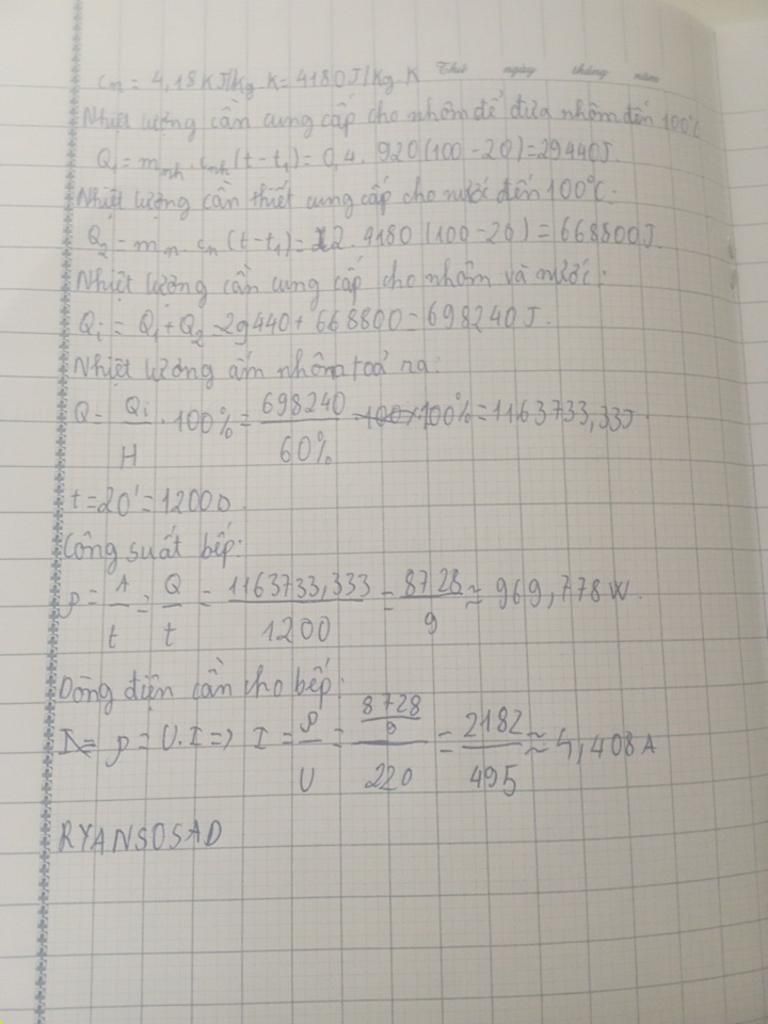 Cn = 4,18KJ/kg K = 4180J/kg K Thứ ngày tháng năm
Nhiệt lượng cần cung cấp cho nhôm để đưa nhôm đến 100°C
Q₁ = m_nh . c_nh (t - t₁) = 0,4. 920(100 - 20) = 29440J.
Nhiệt lượng cần thiết cung cấp cho nước đến 100°C.
Q₂ = m_n . c_n (t - t₁) = 2. 4180 (100 - 20) = 668800J.
Nhiệt lượng cần cung cấp cho nhôm và nước:
Qi = Q₁ + Q₂ = 29440 + 668800 = 698240J.
Nhiệt lượng ấm nhôm toả ra:
Q = Qi/H . 100% = 698240/60% x 100% = 1163733,33J.
t = 20' = 1200s
Công suất bếp:
P = A/t = Q/t = 1163733,333/1200 = 8728/9 ≈ 969,778W.
Dòng điện cần cho bếp:
P = U.I => I = P/U = 8728/9/220 = 2182/495 ≈ 4,408A
RYANSOSAD